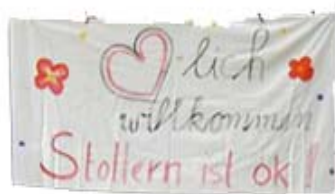 -lich
willkommen
Stottern ist ok!